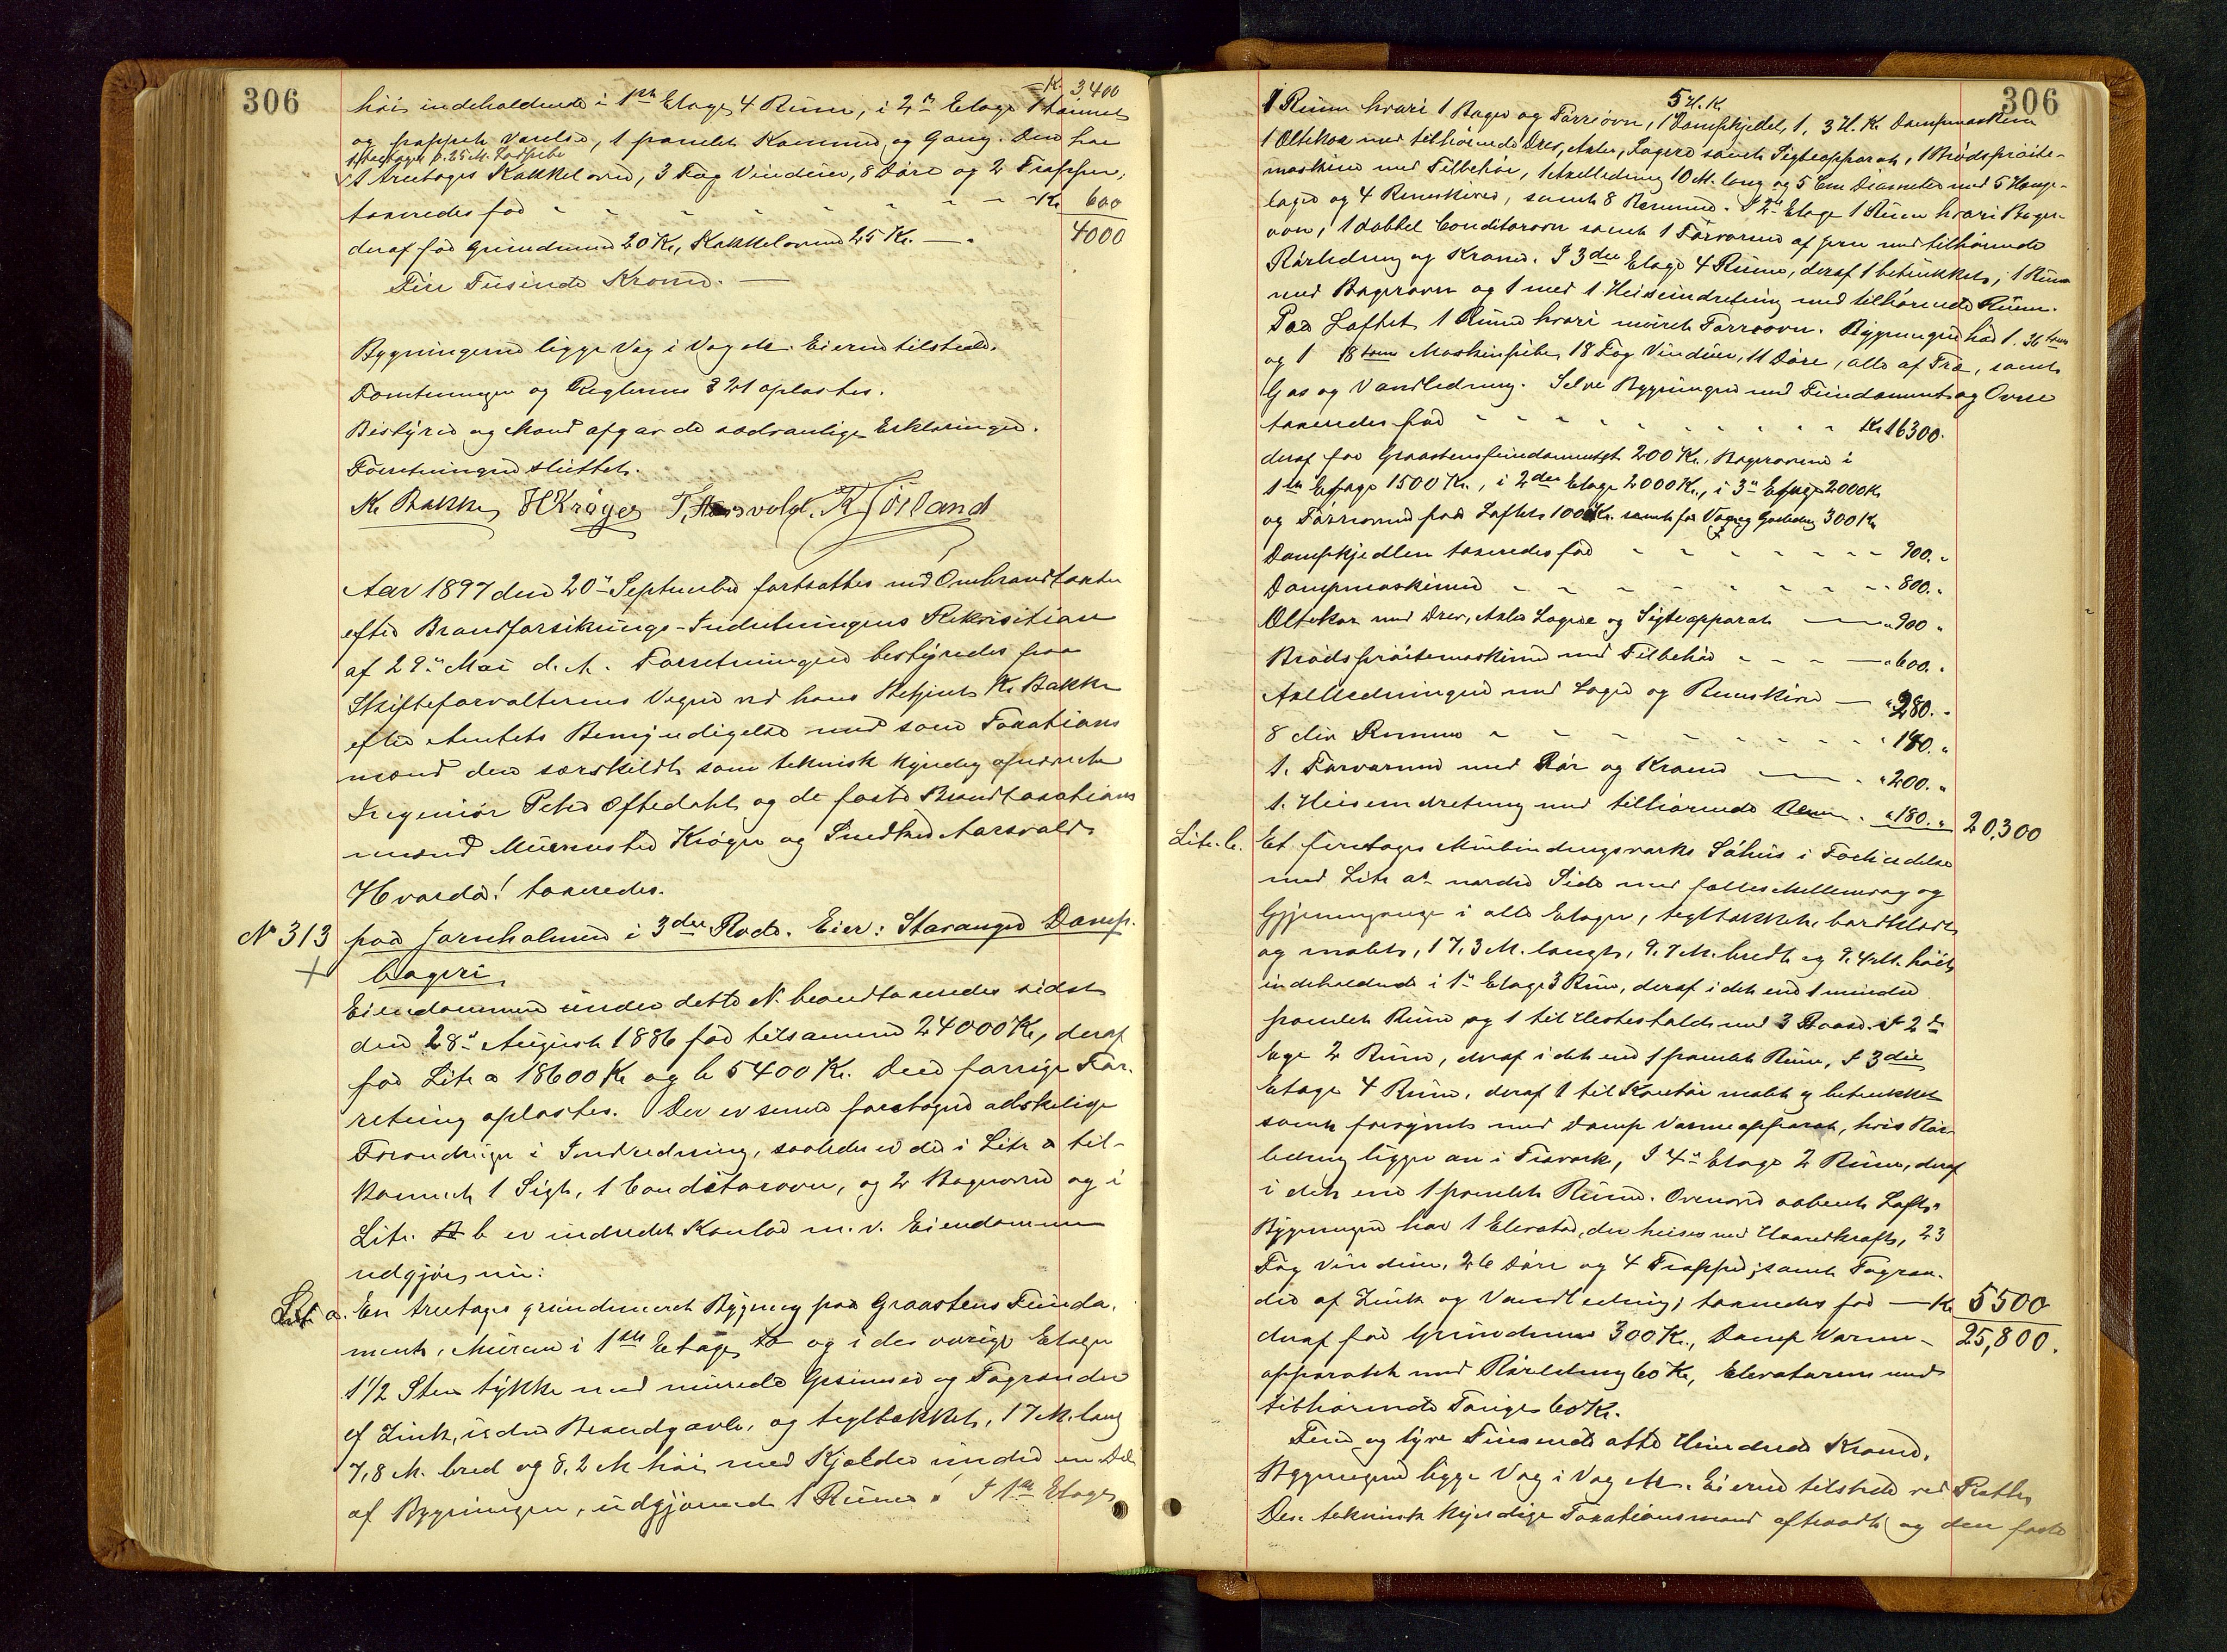 306
– K. 3400
høi, indeholdende i 1ste Etage 4 Rum, i 2den Etage 1 tømret
og pappet Værelse, 1 panelet Kammer og Gang. Den har
1 treetages Kakkelovne, 3 Fag Vinduer, 8 Døre og 2 Trapper,
taxeredes for – – – – – – – Kr. 600
deraf for Grundmur 20 Kr., Kakkelovne 25 Kr. — 4000
Fire Tusinde Kroner. —
Bygningerne ligge Væg i Væg etc. Eieren tilstede.
Forretningen og Reglerne § 21 oplæstes.
Bestyrer og Mænd afgav de sædvanlige Erklæringer.
Forretningen sluttet.
K. Bakke H Krøger T. Aarsvold. K Jösland
Aar 1897 den 20de September fortsattes med Ombrandtaxter
efter Brandforsikrings-Indretningens Rekvisition
af 29de Mai d. A. Forretningen bestyredes paa
Skifteforvalterens Vegne ved hans Betjent K. Bakke
efter Amtets Bemyndigelse med som Taxations
mænd den særskildt som teknisk kyndig opnævnte
Ingeniør Peter Oftedahl og de faste Brandtaxations
mænd Murmester Krøger og Snedker Aarsvold.
Hvorda! taxeredes.
No 313 paa Jorenholmen i 3die Rode. Eier: Stavanger Damp-
+ bageri,
Eiendommen under dette No brandtaxeredes sidst
den 28de August 1886 for tilsammen 24000 Kr, deraf
for Litr a 18600 Kr og b 5400 Kr. Den forrige For-
retning oplæstes. Der er senere foretaget adskillige
Forandringer i Indredning, saaledes er der i Litr a til-
kommet 1 Sigt, 1 Conditorovn, og 2 Bagerovne og i
Litr. b er indredet Kontor m. v. Eiendommen
udgjør nu:
Litr a. En treetages grundmuret Bygning paa Graastens Funda-
ment, Murene i 1ste Etage to og i de øvrige Etager
1 1/2 Sten tykke med murede Gesimser og Tagrender
af Zink, uden Brandgavle, og tegltækket, 17 M. lang
7,8 M. bred og 8,2 M høi, med Kjælder under en Del
af Bygningen, udgjørende 1 Rum. I 1ste Etage
306
5 H. K.
1 Rum hvori 1 Bager og Tørreovn, 1 Dampkjedel, 1, 3 H. K. Dampmaskin
1 Æltekar med tilhørende Drev, Axler, Lagere samt Sigteapparat, 1 Brødsprøite-
maskine med Tilbehør, Axelledning 10 M. lang og 5 Cm Diameter med 5 Hænge-
lager og 4 Remskiver, samt 8 Remme. I 2den Etage 1 Rum hvori Bager-
ovn, 1 dobbel Conditorovn samt 1 Forvarmer af Jern med tilhørende
Rørledning og Kraner. I 3die Etage 4 Rum, deraf 1 betrukket, 1 Rum
med Bagerovn og 1 med 1 Heiseindretning med tilhørende Rum.
Paa Loftet 1 Rum hvori muret Tørreovn. Bygningen har 1. 36 toms
og 1 18 toms Maskinpibe, 18 Fag Vinduer, 11 Døre, alle af Træ, samt
Gas og Vandledning. Selve Bygningen med Fundament og Ovne
taxeredes for – – – – – – – Kr. 16300.
deraf for Graastensfundamentet 200 Kr, Bagerovnene i
1ste Etage 1500 Kr., i 2den Etage 2000 Kr., i 3de Etage 2000 Kr
og Tørreovn paa Loftet 100 Kr. samt for Vand og Gasledning 300 Kr
Dampkjedlen taxeredes for – – – – – 900. "
Dampmaskinen – – – – – – – 800. "
Æltekar med Drev, Axler Lagere og Sigteapparat — " 900 "
Brødsprøitemaskinen med Tilbehør – – – — " 600. "
Axelledningen med Lager og Remskiver — " 280. "
8 div Remme – – – – – – – " 140. "
1. Forvarmer med Rør og Kraner — " 200. "
1. Heiseindretning med tilhørende Rum " 180. " 20,300
Litr. b. Et firetages Murbindingsværks Søhus i Forbindelse
med Litr a's nordre Side med fælles Mellemvæg og
Gjennemgange i alle Etager, tegltækket, bordklædt
og malet, 17,3 M. langt, 9,7 M. bredt og 9,4 M. høit,
indeholdende i 1ste Etage 3 Rum, deraf i det ene 1 mindre
panelet Rum og 1 til Hestestald med 3 Baase. I 2den
Etage 2 Rum, deraf i det ene 1 panelet Rum, I 3die
Etage 4 Rum, deraf 1 til Kontor malet og betrukket
samt forsynet med Damp Varmeapparat, hvis Rør-
ledning ligger an i Træværk, I 4de Etage 2 Rum, deraf
i det ene 1 panelet Rum. Ovenover aabent Loft.
Bygningen har 1 Elevator, der heises med Haandkraft, 23
Fag Vinduer, 26 Døre og 4 Trapper; samt Tagren-
der af Zink og Vandledning; taxeredes for — Kr. 5500
deraf for Grundmur 300 Kr., Damp Varme- 25,800.
apparatet med Rørledning 60 Kr, Elevatoren med
tilhørende Tauge 60 Kr.
Fem og tyve Tusende otte Hundrede Kroner.
Bygningerne ligge Væg i Væg etc. Eieren tilstede ved
Den teknisk kyndige Taxationsmand aftraadt og den faste